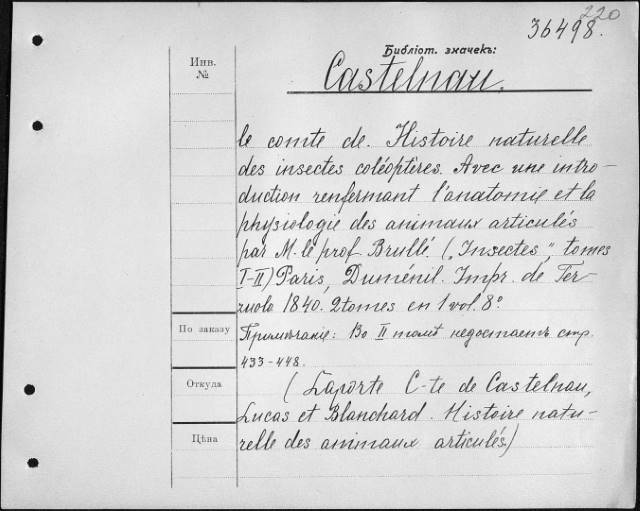 220
36498.
Библіот. значекъ:
Castelnau.
Инв.
№
le comte de. Histoire naturelle
des insectes coléoptères. Avec une intro-
duction renfermant l'anatomie et la
physiologie des animaux articulés
par M. le prof. Brullé. („Insectes“, tomes
I-II) Paris, Duménil. Impr. de Ter-
zuolo 1840. 2 tomes en 1 vol. 8º
По заказу
Примѣчаніе: Во II томѣ недостаетъ стр.
433-448.
Откуда
(Laporte C-te de Castelnau,
Lucas et Blanchard. Histoire natu-
Цѣна
relle des animaux articulés)